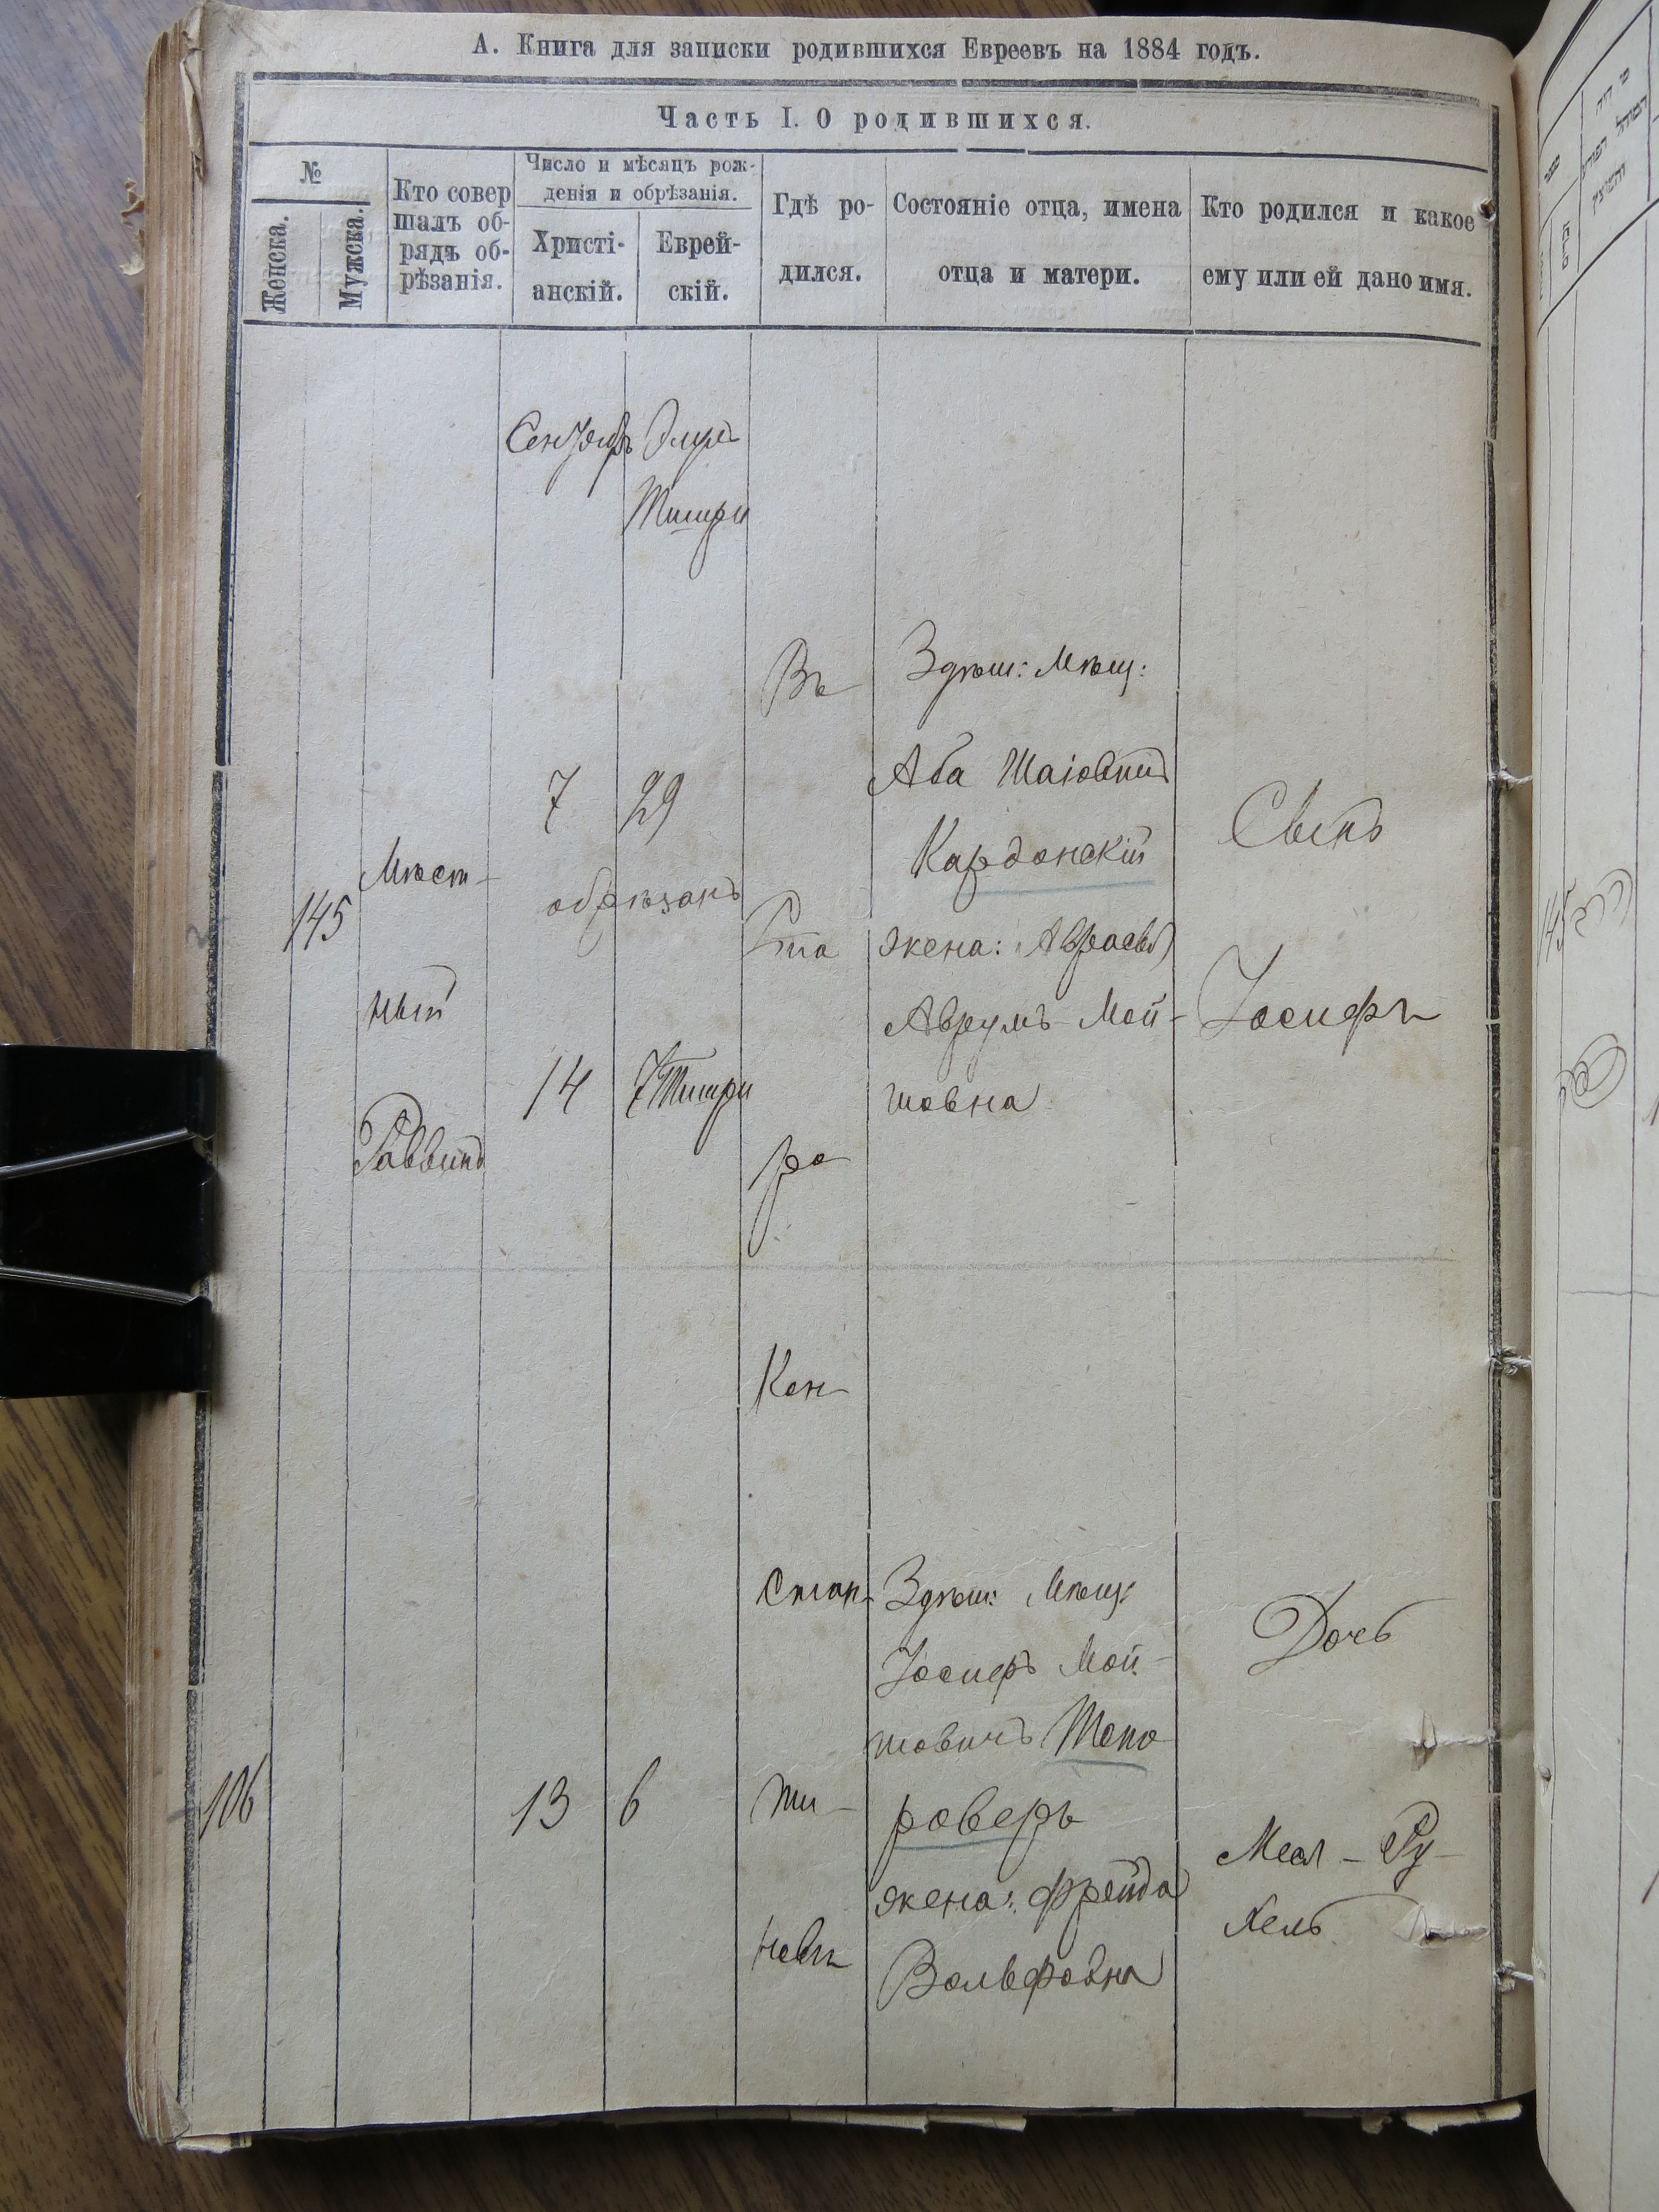 А. Книга для записки родившихся Евреевъ на 1884 годъ.
Часть I. О родившихся.
№
Женска.
Мужска.
Кто совер
шалъ об-
рядъ об-
рѣзанія.
Число и мѣсяцъ рож-
денія и обрѣзанія.
Христі-
анскій.
Еврей-
скій.
Гдѣ ро-
дился.
Состояніе отца, имена
отца и матери.
Кто родился и какое
ему или ей дано имя.
Сентябрь
Элулъ
Тишри
145
Мѣст-
ный
Раввинъ
7
29
обрѣзанъ
14
7 Тишри
Въ
Ста
ро
Кон
стан-
ти-
новѣ
Здѣш: Мѣщ:
Аба Шаіовичъ
Кардонскій
жена:
Аврумъ-Мой-
шовна
Сынъ
Іосифъ
106
13
6
Здѣш: Мѣщ:
Іосифъ Мой-
шовичъ Топо
роверъ
жена: Фрейда
Вольфовна
Дочь
Меал-Ру-
хель
145